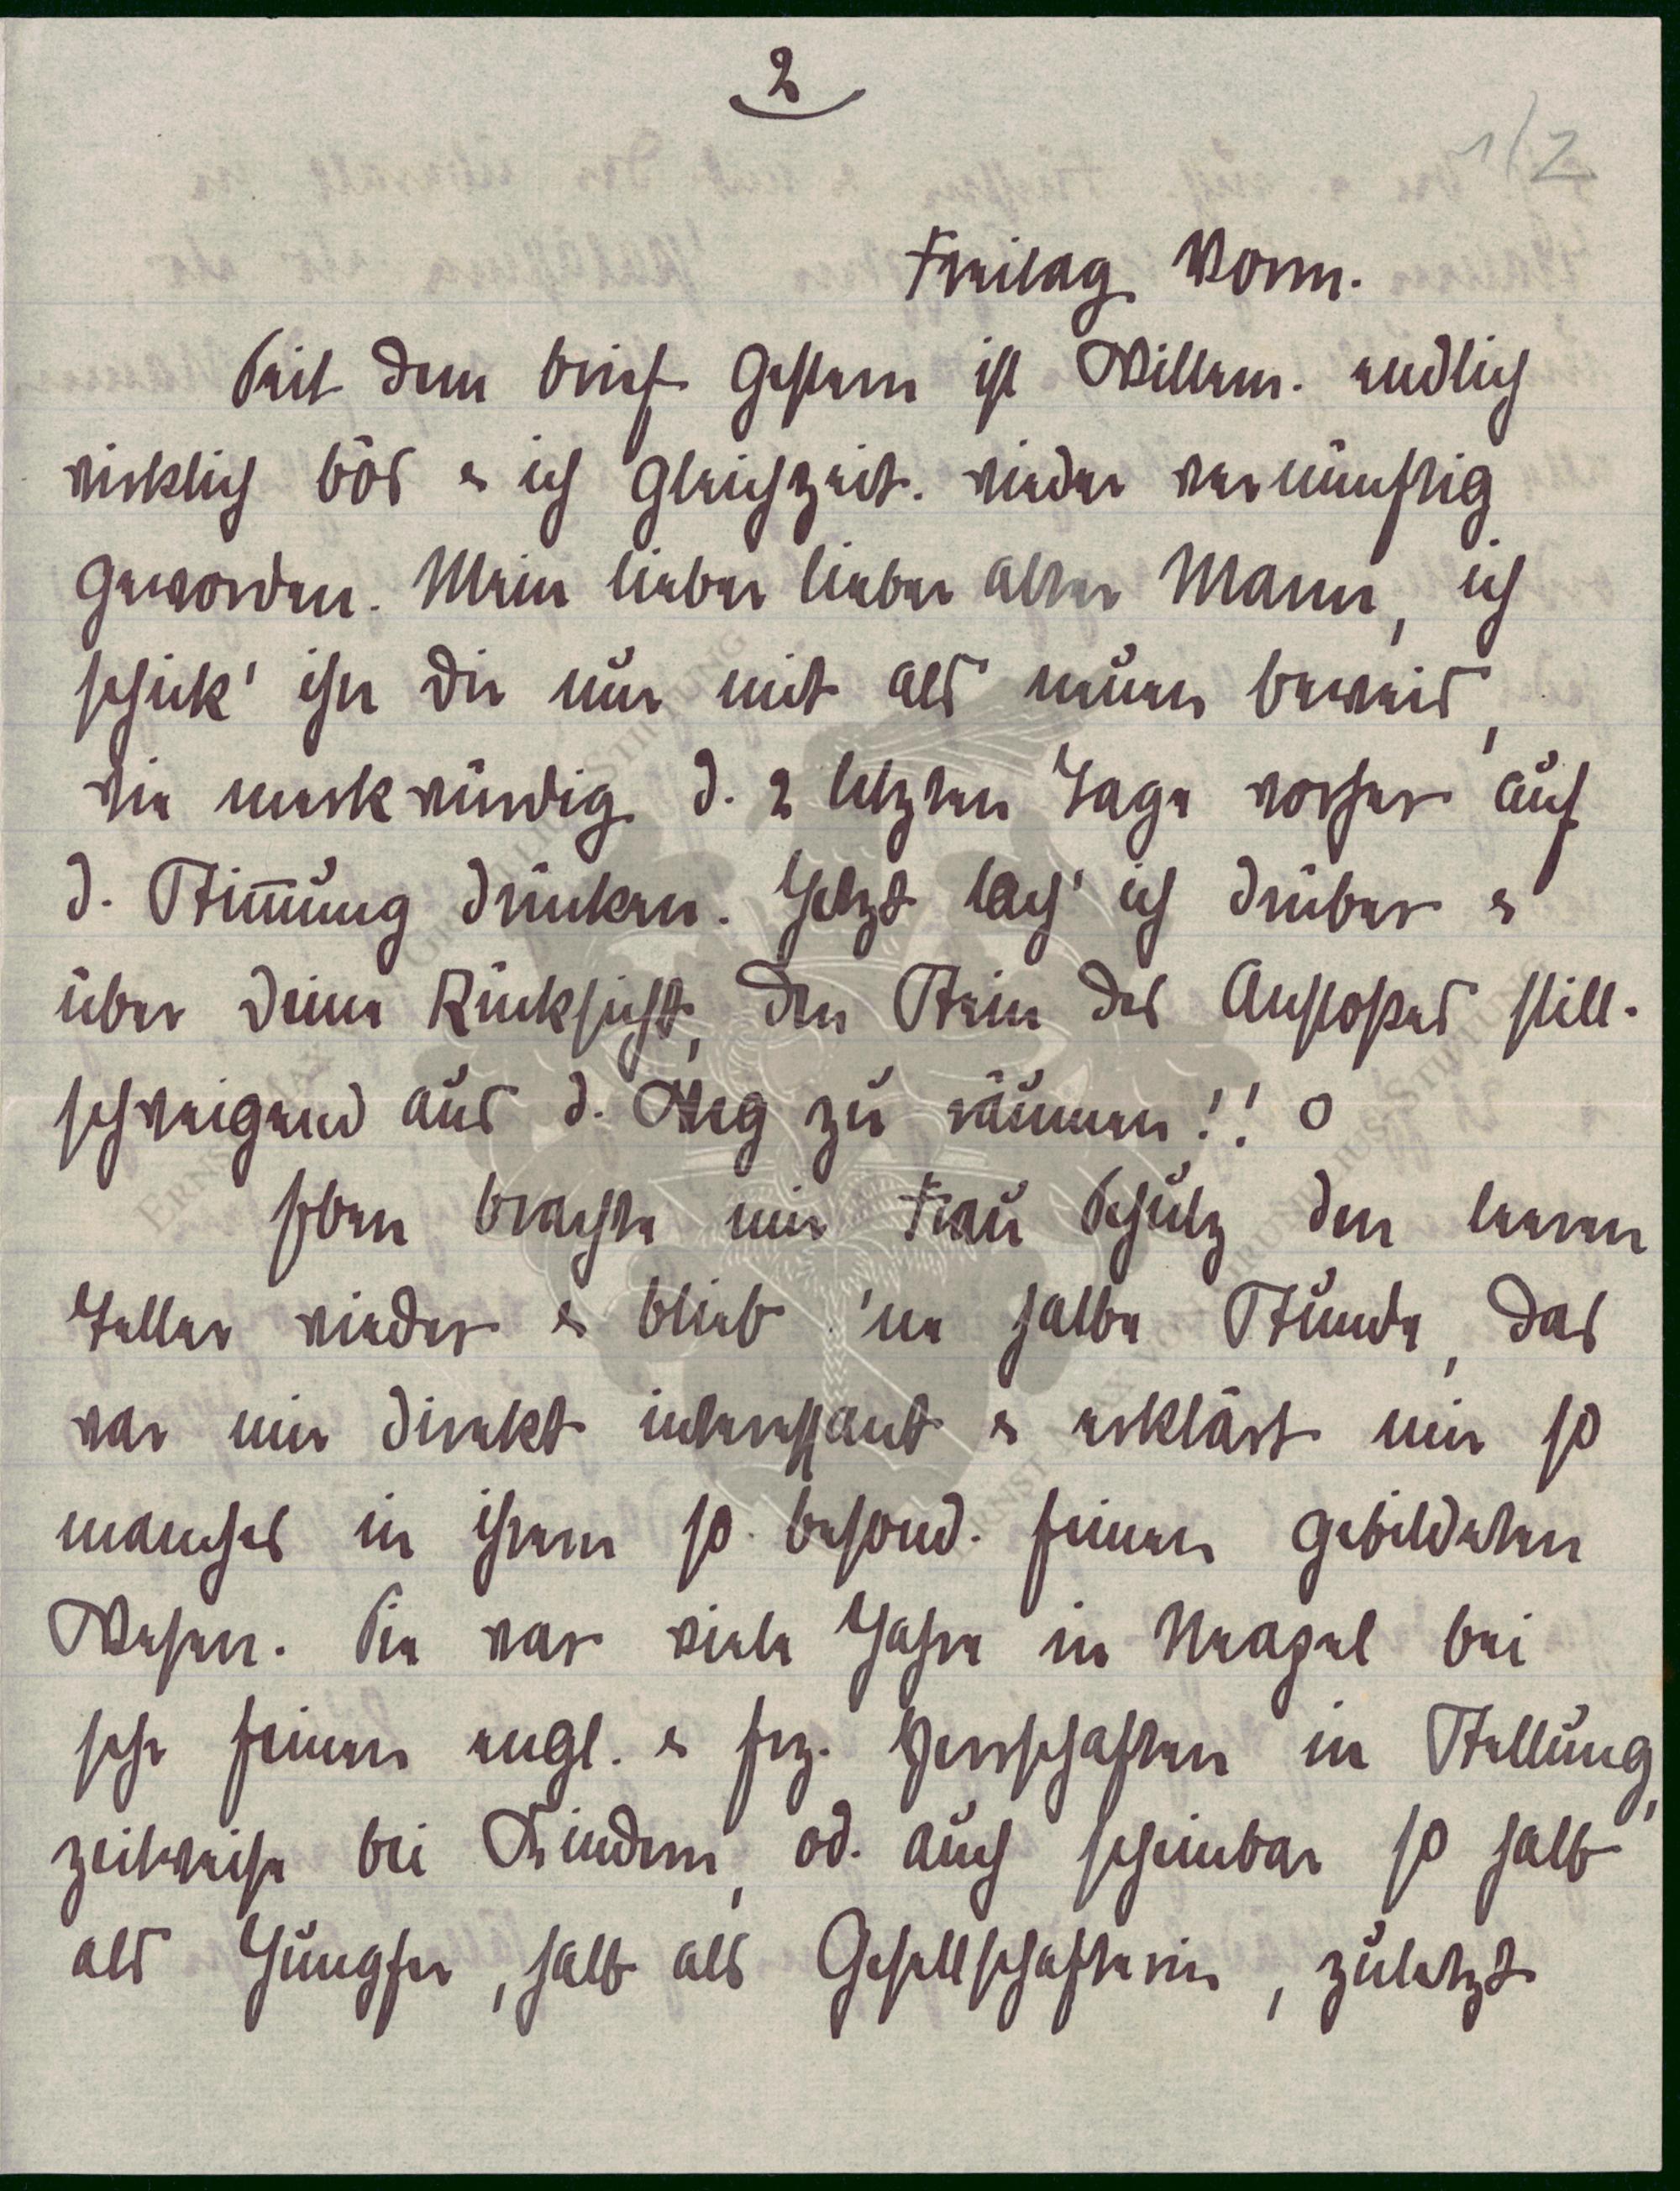 2
1/2
Freitag Vorm.
Seit dem Brief gestern ist Willem. endlich
wirklich bös & ich gleichzeit. wieder vernünftig
geworden. Mein lieber lieber alter Mann, ich
schick' ihn Dir nur mit als neuen Beweis,
wie merkwürdig d. 2 letzten Tage vorher auf
d. Stim̅ung drücken. Jetzt lach' ich drüber &
über Deine Rücksicht, den Stein des Anstoßes still-
schweigend aus d. Weg zu räumen!! o
Eben brachte mir Frau Schulz den leeren
Teller wieder & blieb 'ne halbe Stunde, das
war mir direkt interessant & erklärt mir so
manches in ihrem so besond. feinen gebildeten
Wesen. Sie war viele Jahre in Neapel bei
sehr feinen engl. & frz. Herrschaften in Stellung,
zeitweise bei Kindern, od. auch scheinbar so halb
als Jungfer, halb als Gesellschafterin, zuletzt
ERNST MAX VON GRUNELIUS-STIFTUNG
ERNST MAX VON GRUNELIUS-STIFTUNG